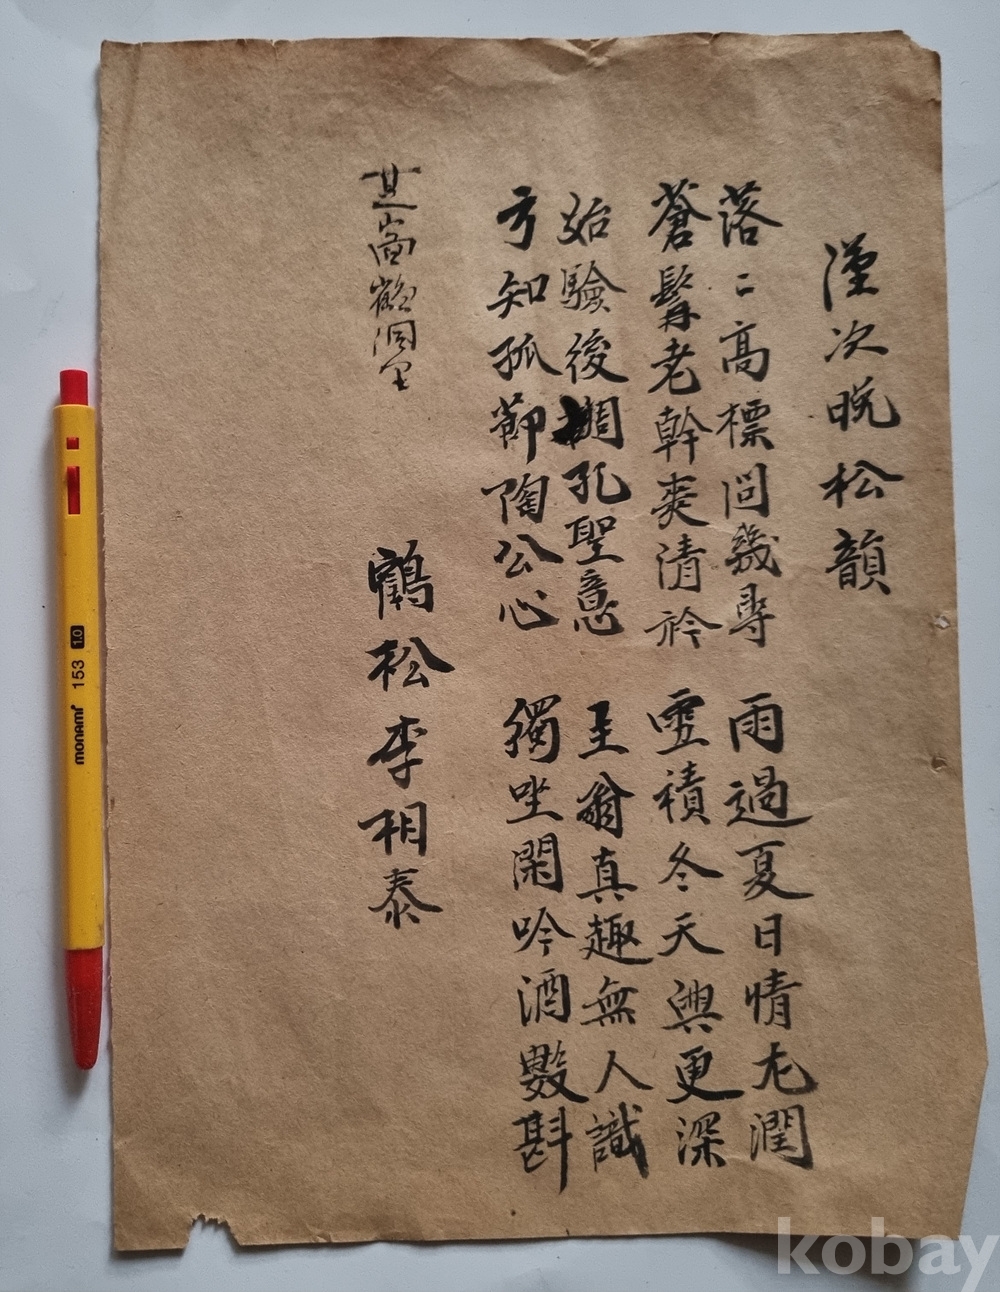 謹次晩松韻
落〻高標問幾尋 雨過夏日情尤潤
蒼髯老幹爽清衿 雪積冬天興更深
始驗後凋孔聖意 爾真趣無人識
方知孤節陶公心 獨坐閑吟酒數斟
鶴洞里 鶴松 李相泰
monami 153 1.0
kobay